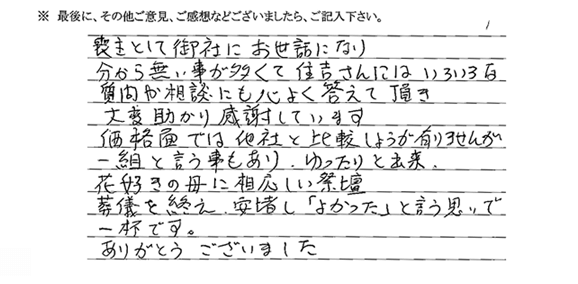 ※ 最後に、その他ご意見、ご感想などございましたら、ご記入下さい。
喪主として御社に お世話になり
分から無い事が多くて 住吉さんには いろいろな
質問や相談にも心よく答えて頂き
大変助かり感謝しています
価格面では他社と比較しようが有りませんが
一組と言う事もあり、ゆったりと出来、
花好きの母に相応しい祭壇
葬儀を終え、安堵し「よかった」と言う思いで
一杯です。
ありがとう ございました